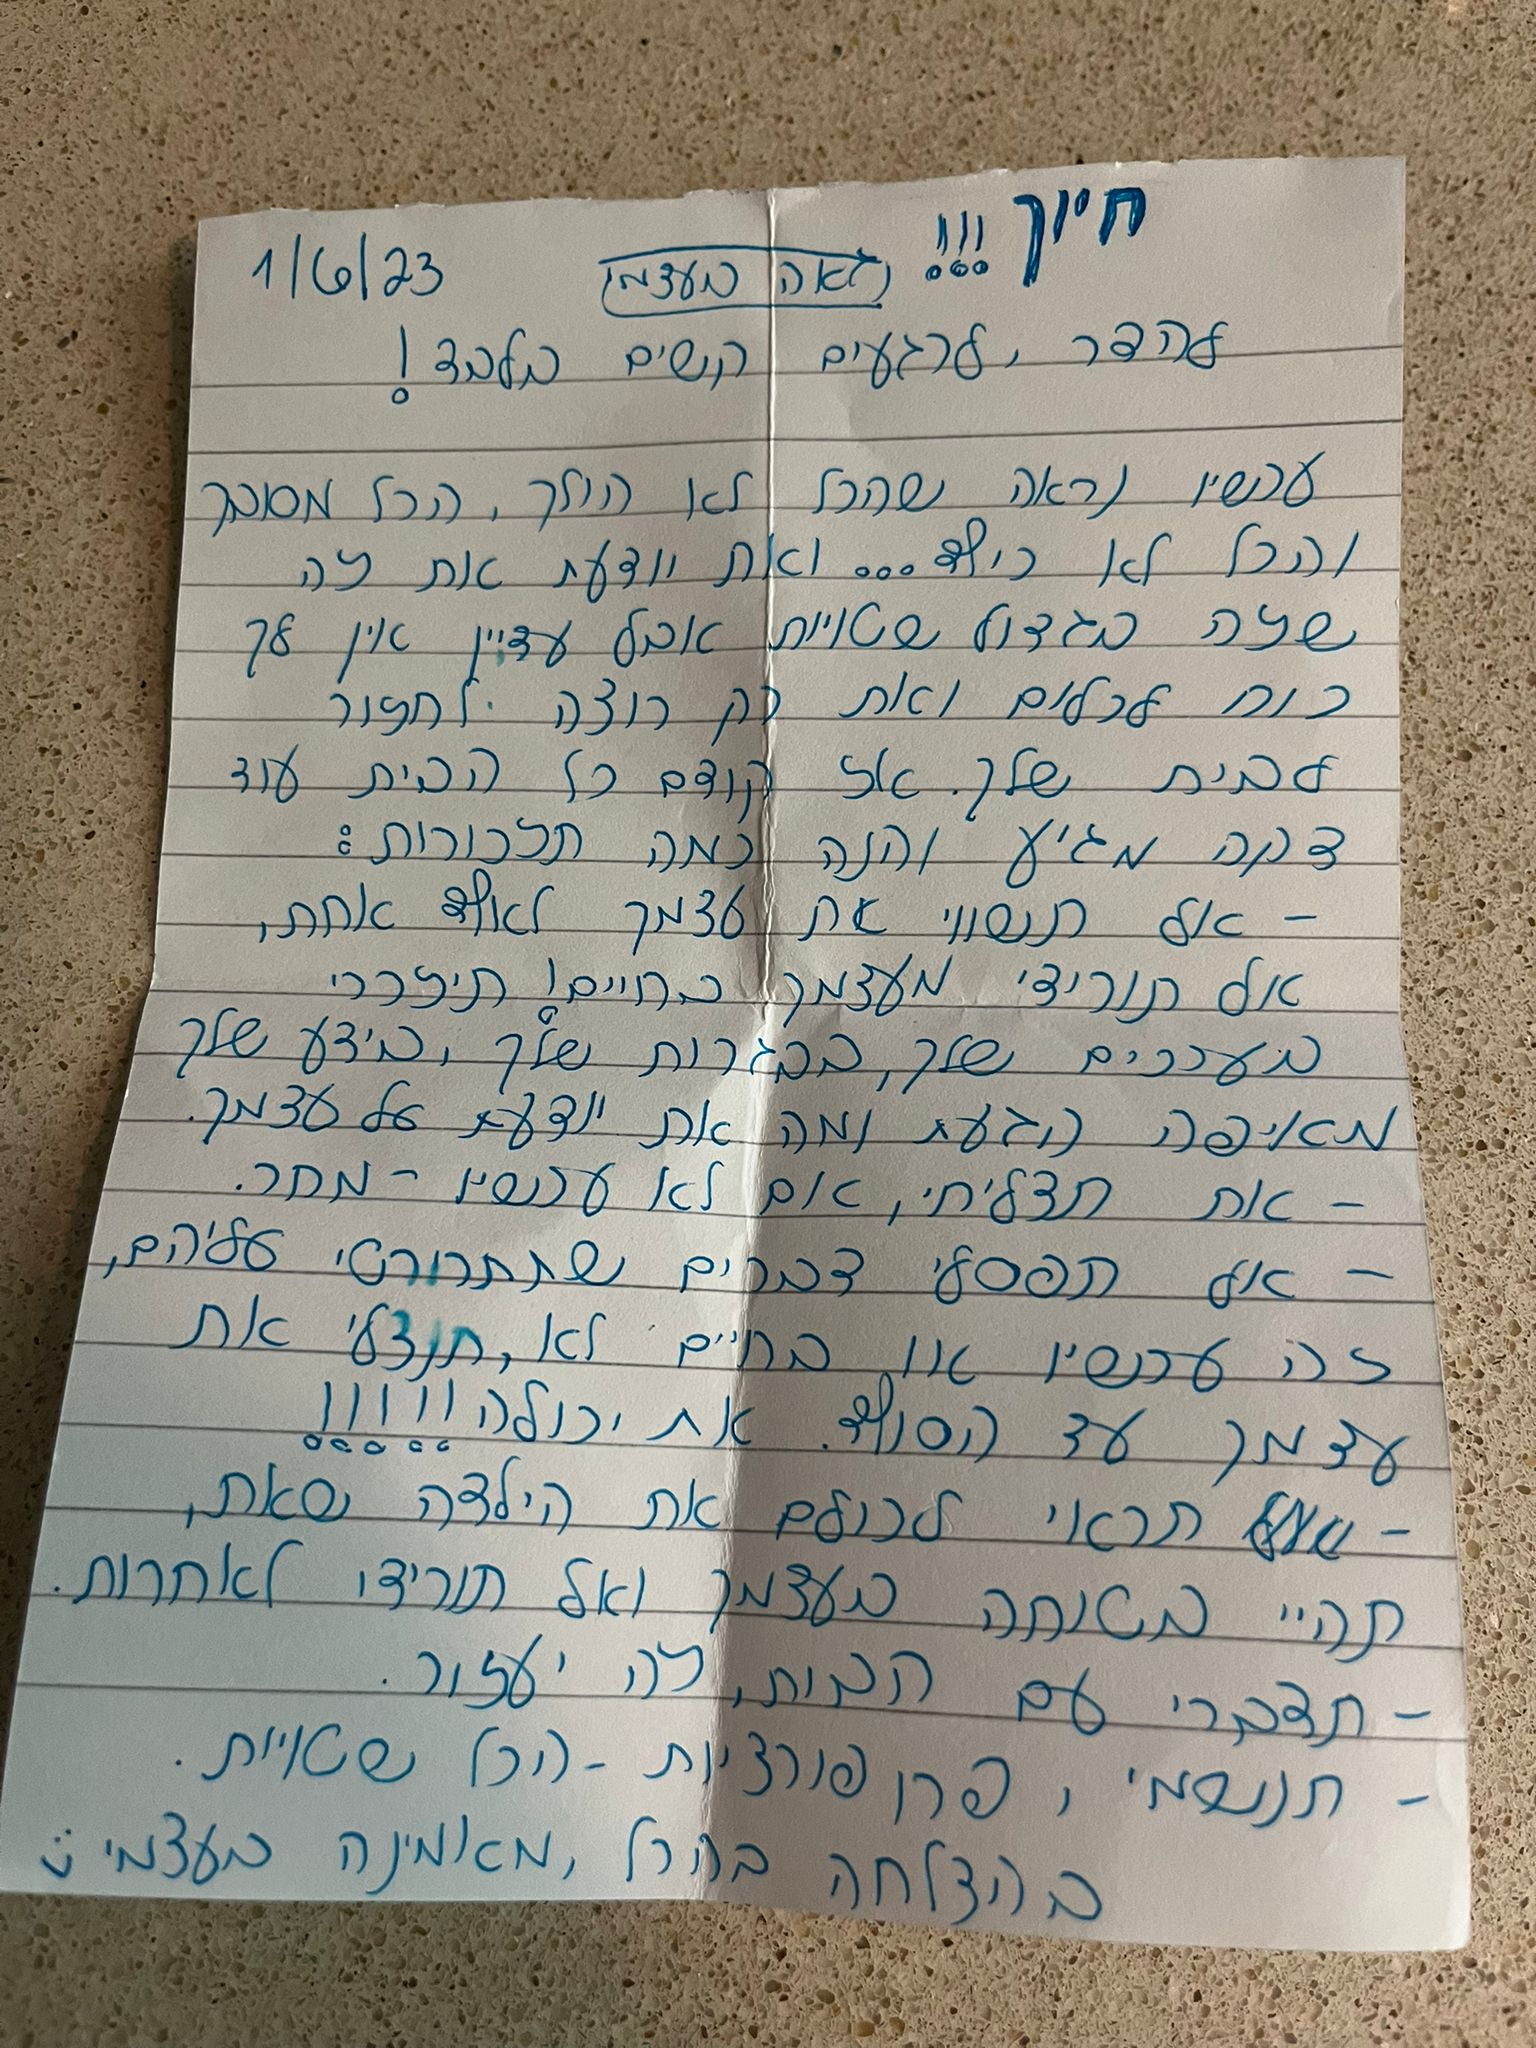 חיוך !!!
גאה בעצמי
1/6/23
להדר, לרגעים קשים בלבד!
עכשיו נראה שהכל לא הולך, הכל מסובך
והכל לא כיף... ואת יודעת את זה
שזה בגדול שטויות אבל עדיין אין לך
כוח לכלום ואת רק רוצה לחזור
לבית שלך. אז קודם כל הבית עוד
דקה מגיע והנה כמה תזכורות:
- אל תשווי את עצמך לאף אחת,
אל תורידי מעצמך בחיים! תיזכרי
בערכים שלך, בבגרות שלך, בידע שלך
מאיפה הגעת ומה את יודעת על עצמך.
- את תצליחי, אם לא עכשיו - מחר.
- אל תפסלי דברים שתתחרטי עליהם,
זה עכשיו או בחיים לא, תנצלי את
עצמך עד הסוף. את יכולה !!!!!
- תראי לכולם את הילדה שאת,
תהיי בטוחה בעצמך ואל תורידי לאחרות.
- תדברי עם הבית, זה יעזור.
- תנשמי, פרופורציות - הכל שטויות.
בהצלחה בהכל, מאמינה בעצמי :)